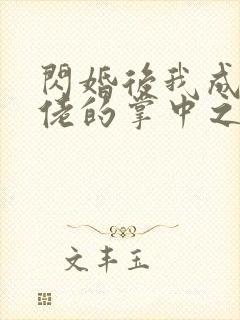 閃婚後我成
佬的掌中之
文丰玉